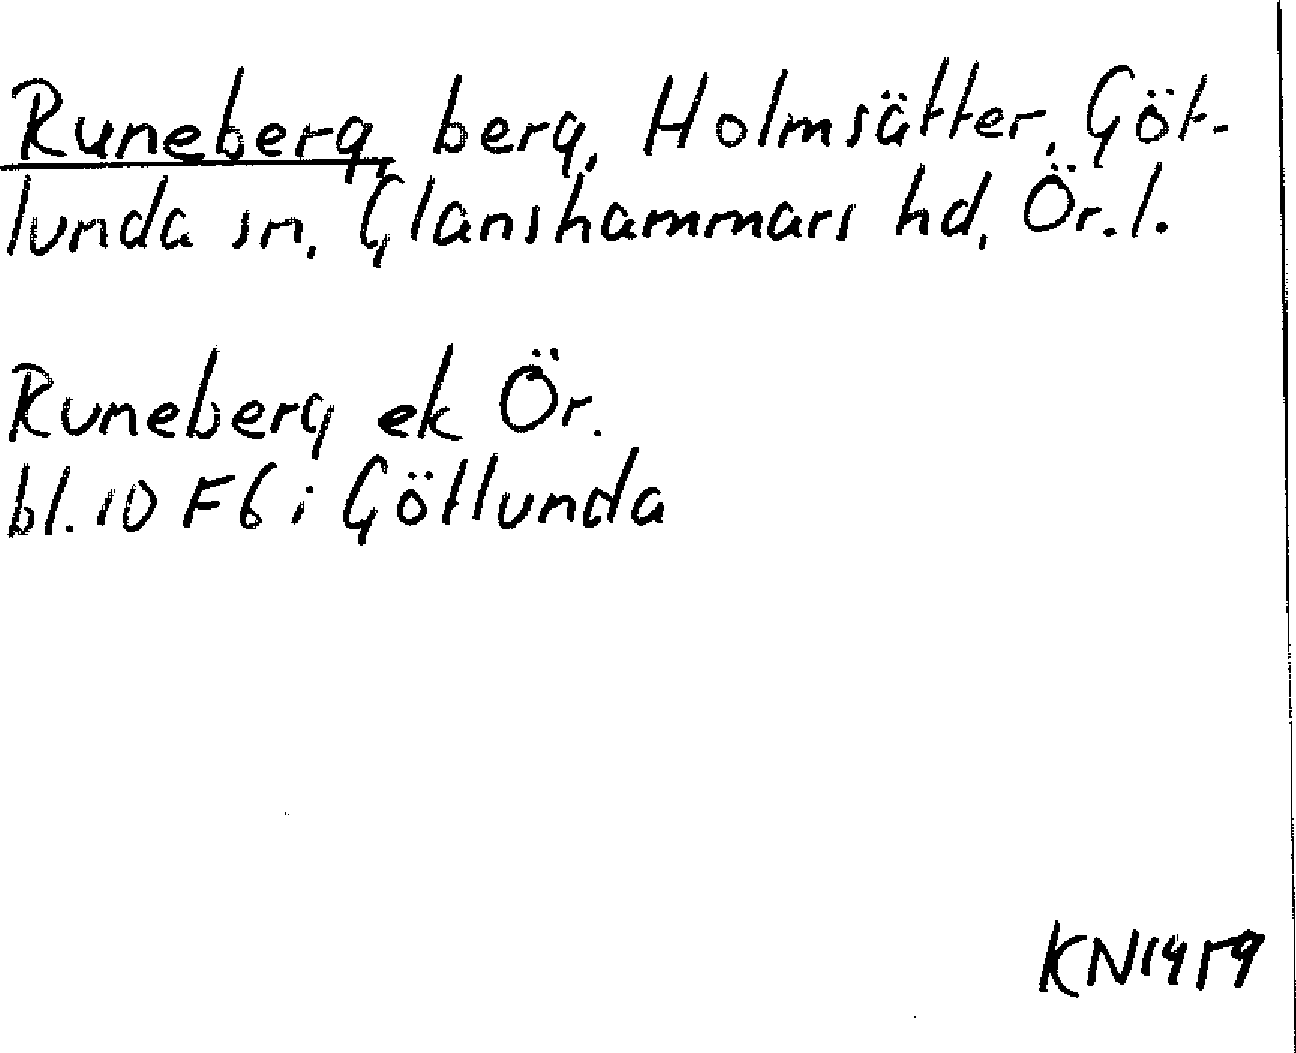 Runeberg, berg, Holmsätter, Göt-
lunda sn, Glanshammars hd, Ör. l.
Runeberg ek Ör.
bl. 10 F6 i Götlunda
KN 1959